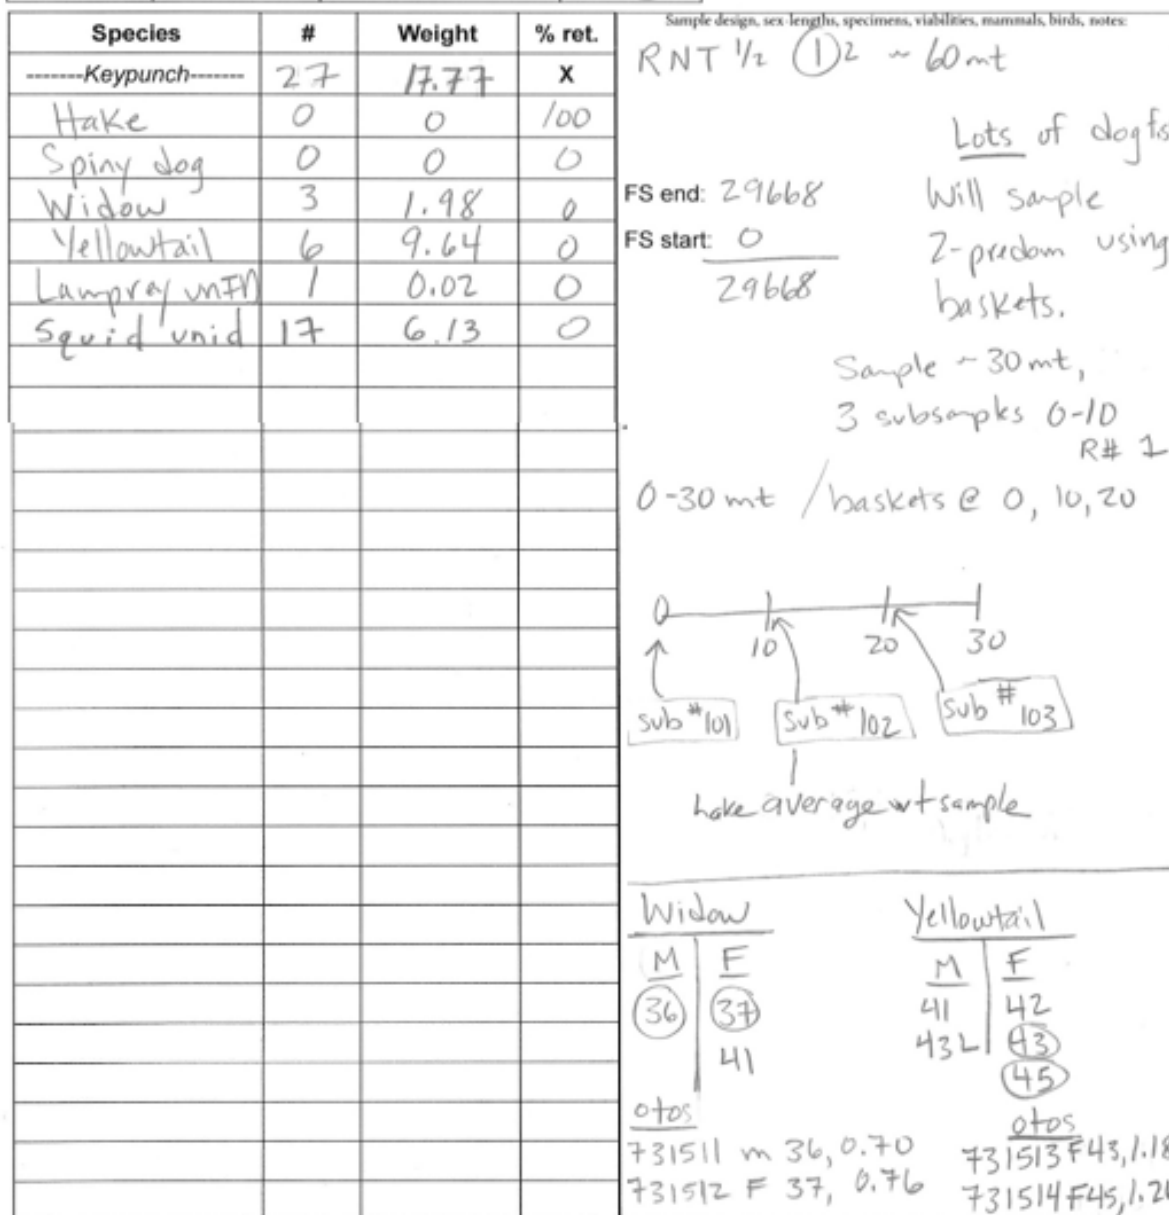 Species # Weight % ret.
-------Keypunch------- 27 17.77 X
Hake 0 0 100
Spiny dog 0 0 0
Widow 3 1.98 0
Yellowtail 6 9.64 0
Lamprey unID 1 0.02 0
Squid unid 17 6.13 0
Sample design, sex-lengths, specimens, viabilities, mammals, birds, notes:
RNT 1/2 1 2 ~ 60 mt
Lots of dogfis
FS end: 29668
FS start: 0
29668
Will sample
2-predom using
baskets.
Sample ~ 30 mt,
3 subsamples 0-10
R# 1
0-30 mt / baskets @ 0, 10, 20
0 10 20 30
sub #101 sub #102 sub #103
hake average wt sample
Widow
M F
36 37
41
otos
731511 m 36, 0.70
731512 F 37, 0.76
Yellowtail
M F
41 42
43L 43
45
otos
731513 F43, 1.18
731514 F45, 1.26